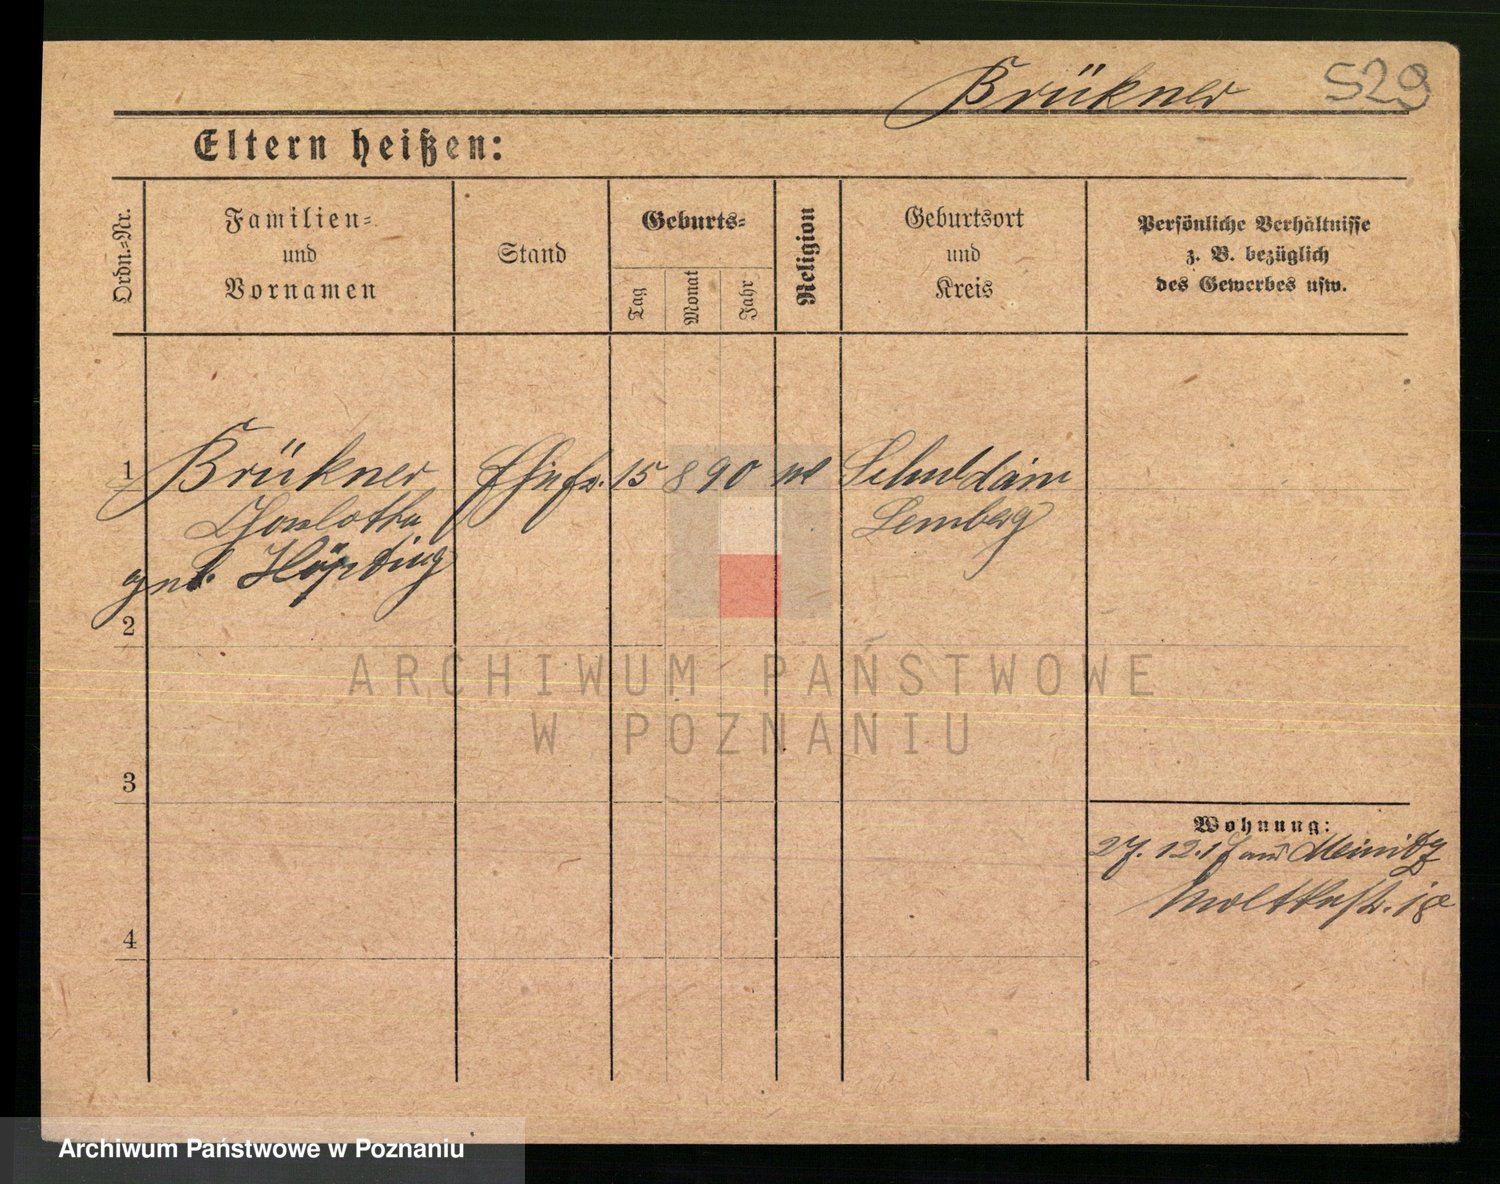 Brükner 529
Eltern heißen:
Ordn.=Nr.
Familien=
und
Vornamen
Stand
Geburts=
Tag
Monat
Jahr
Religion
Geburtsort
und
Kreis
Persönliche Verhältnisse
z. B. bezüglich
des Gewerbes usw.
1 Brükner 15 8 90
Lemberg
geb.
2
ARCHIWUM PAŃSTWOWE
W POZNANIU
3
Wohnung:
27. 12. 17 aus
Moltkestr. 18
4
Archiwum Państwowe w Poznaniu